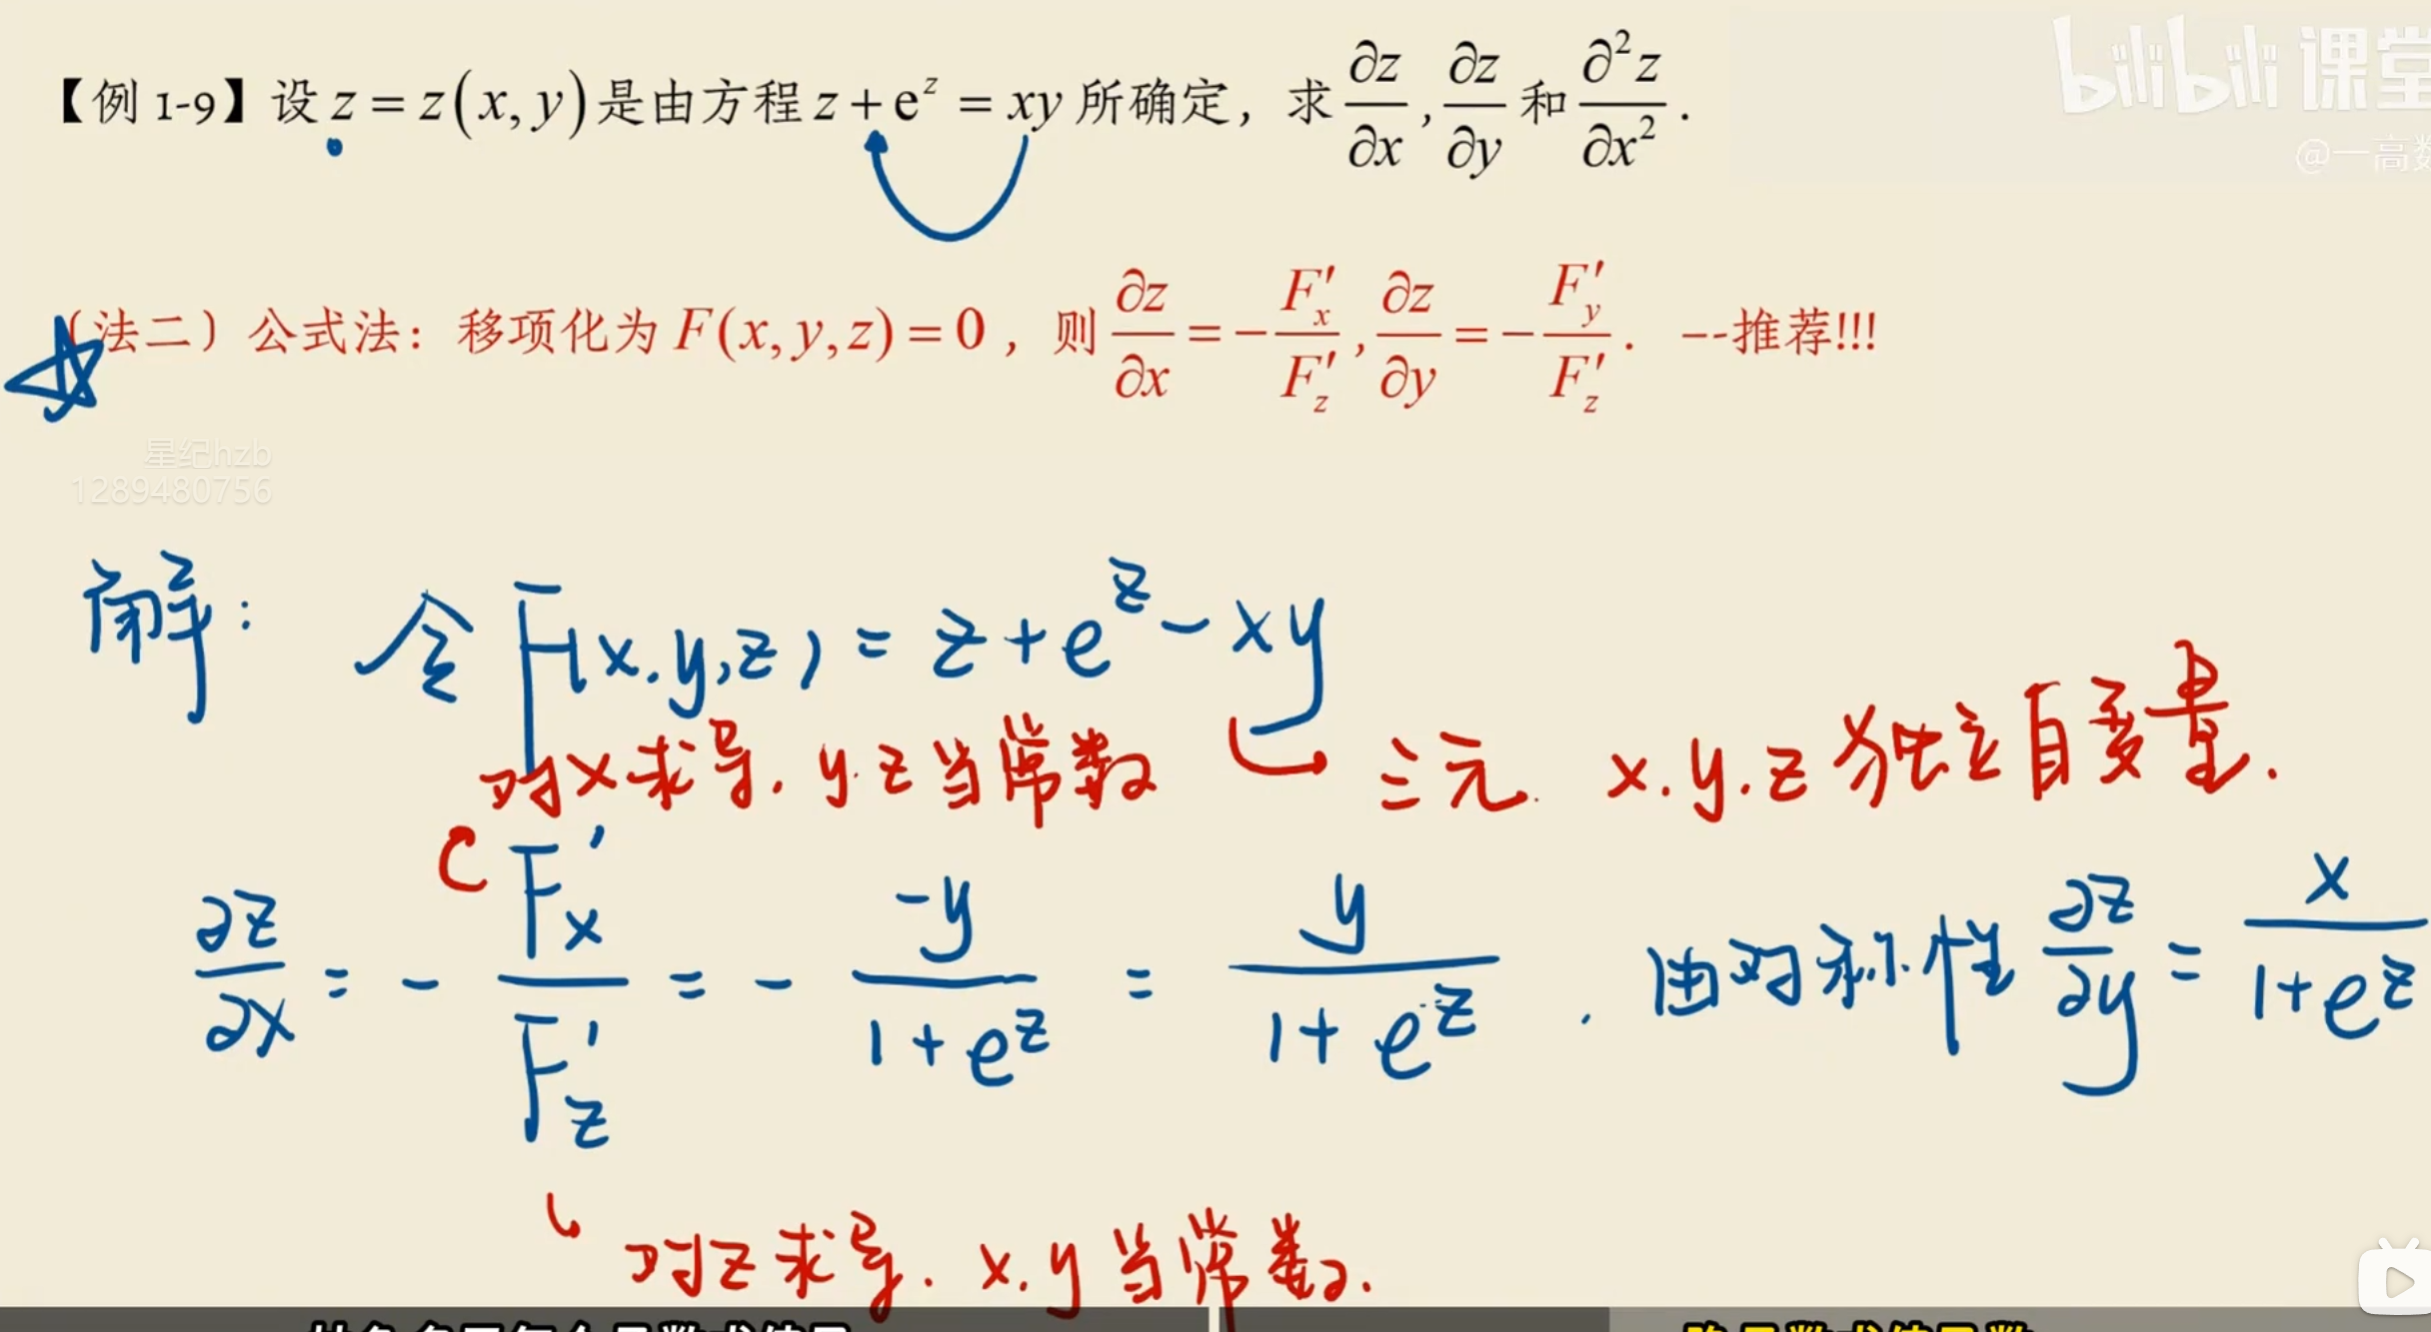 bilibili 课堂
【例 1-9】设 z = z(x, y) 是由方程 z + e^z = xy 所确定，求 ∂z/∂x , ∂z/∂y 和 ∂²z/∂x² .
@一高数
（法二）公式法：移项化为 F(x, y, z) = 0 ，则 ∂z/∂x = − F'_x/F'_z , ∂z/∂y = − F'_y/F'_z . --推荐!!!
星纪hzb
1289480756
解： 令 F(x.y,z) = z + e^z − xy
对x求导. y.z当常数 三元. x.y.z 独立自变量.
∂z/∂x = − F'_x/F'_z = − −y/(1+e^z) = y/(1+e^z) . 由对称性 ∂z/∂y = x/(1+e^z)
对z求导. x.y当常数.